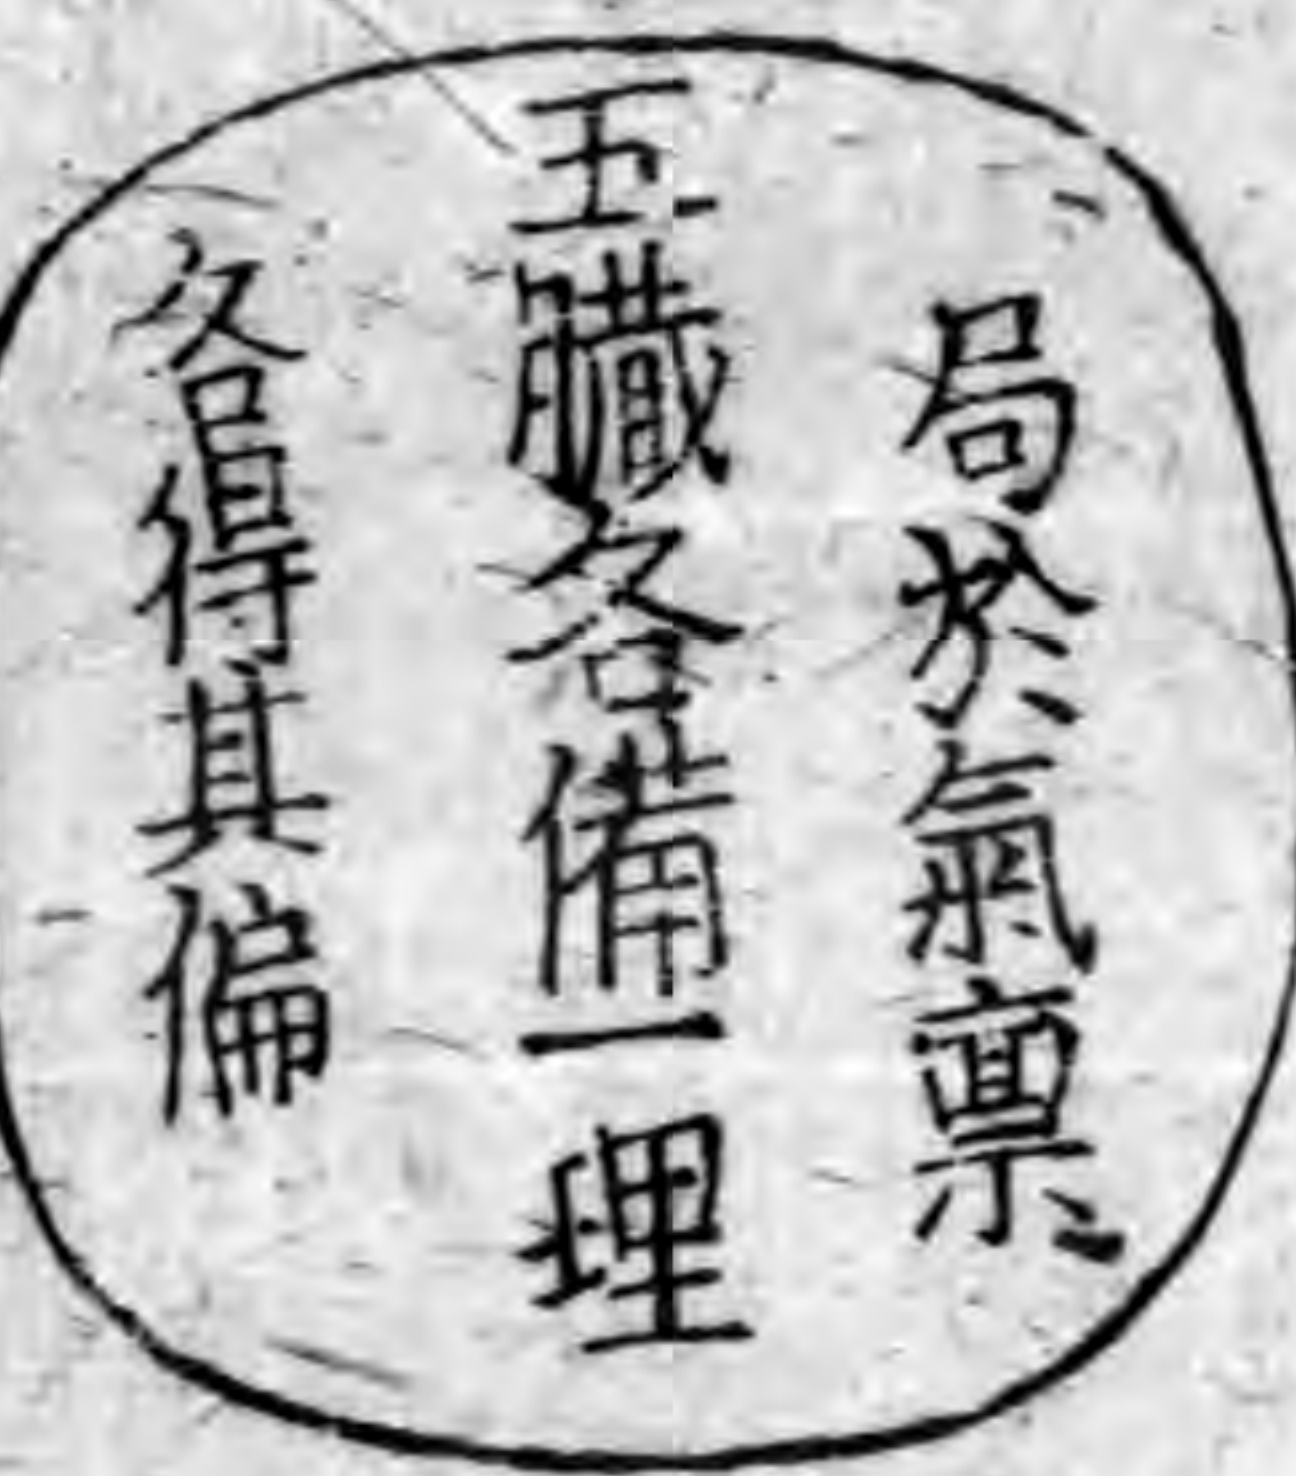 局於氣禀
五臟各備一理
各得其偏